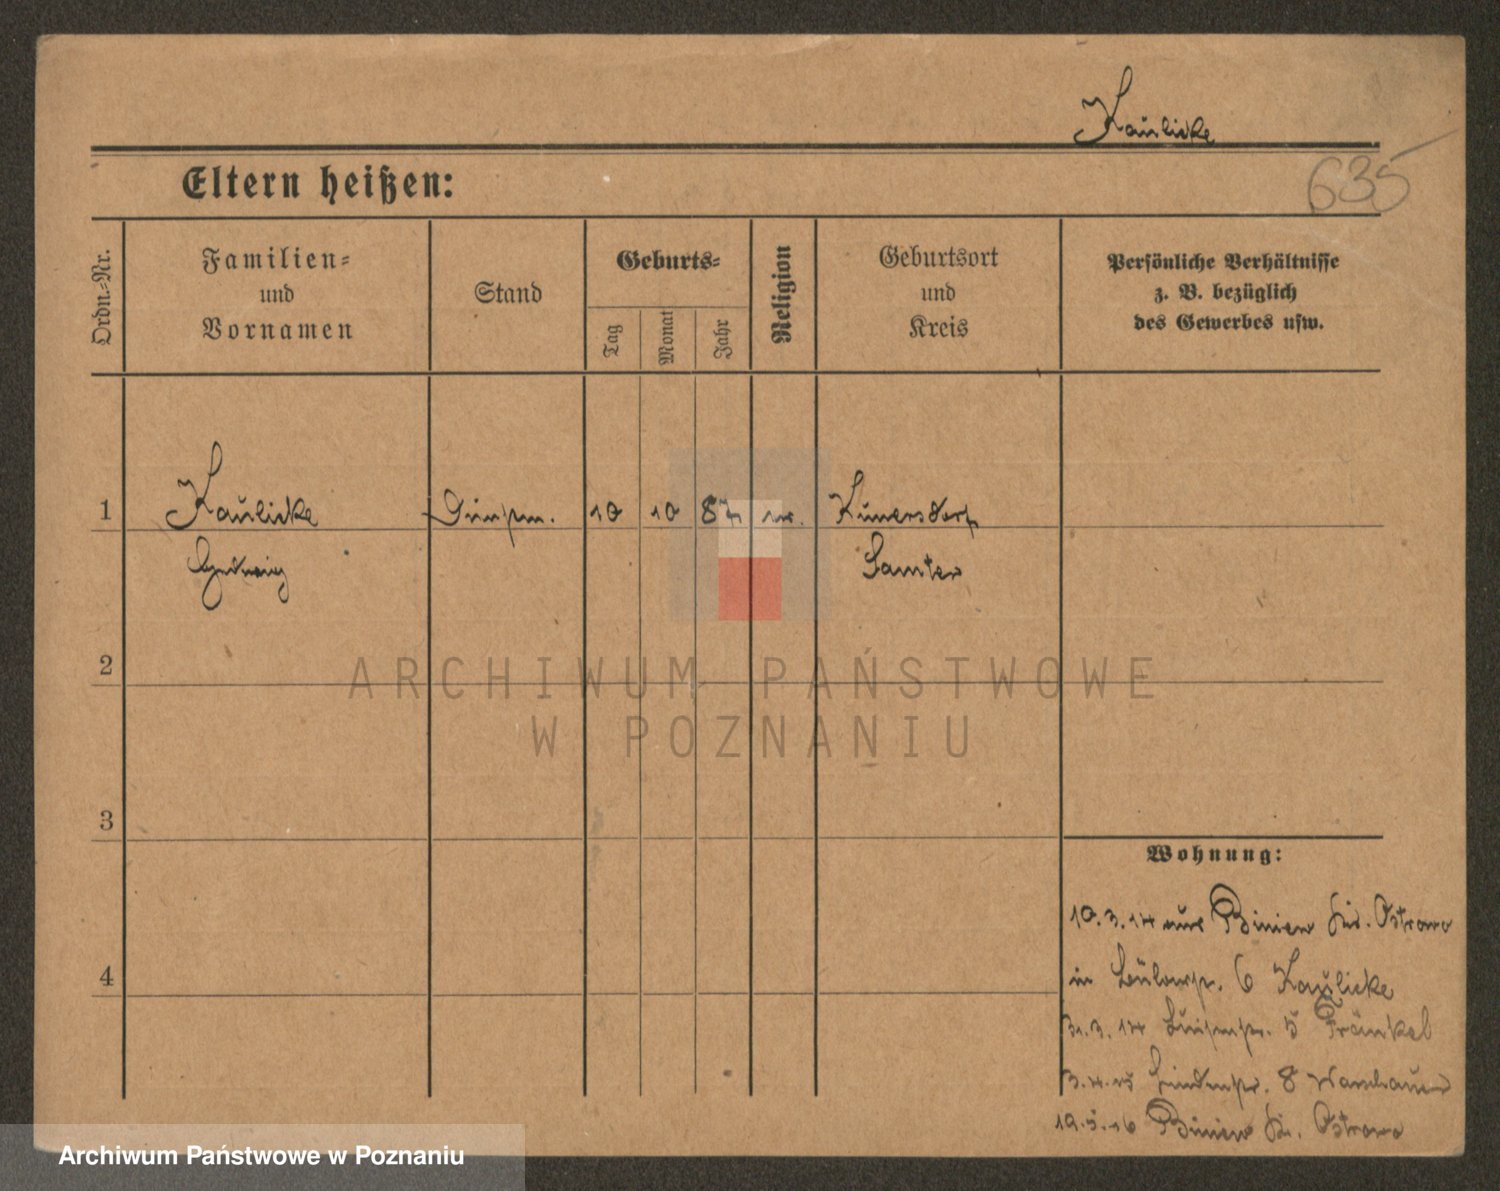 Kaulicke
635
Eltern heißen:
Ordn.=Nr.
Familien=
und
Vornamen
Stand
Geburts=
Tag
Monat
Jahr
Religion
Geburtsort
und
Kreis
Persönliche Verhältnisse
z. B. bezüglich
des Gewerbes usw.
1 Kaulicke 10 10 87 Kunersdorf
Hedwig Samter
2
ARCHIWUM PAŃSTWOWE
W POZNANIU
3
Wohnung:
10.3.14 aus Biniew Kr. Ostrowo
4
in Bülowstr. 6 Kaulicke
31.3.14 Luisenstr. 5 Fränkel
Lindenstr. 8 Warschauer
19.5.16 Biniew Kr. Ostrowo
Archiwum Państwowe w Poznaniu